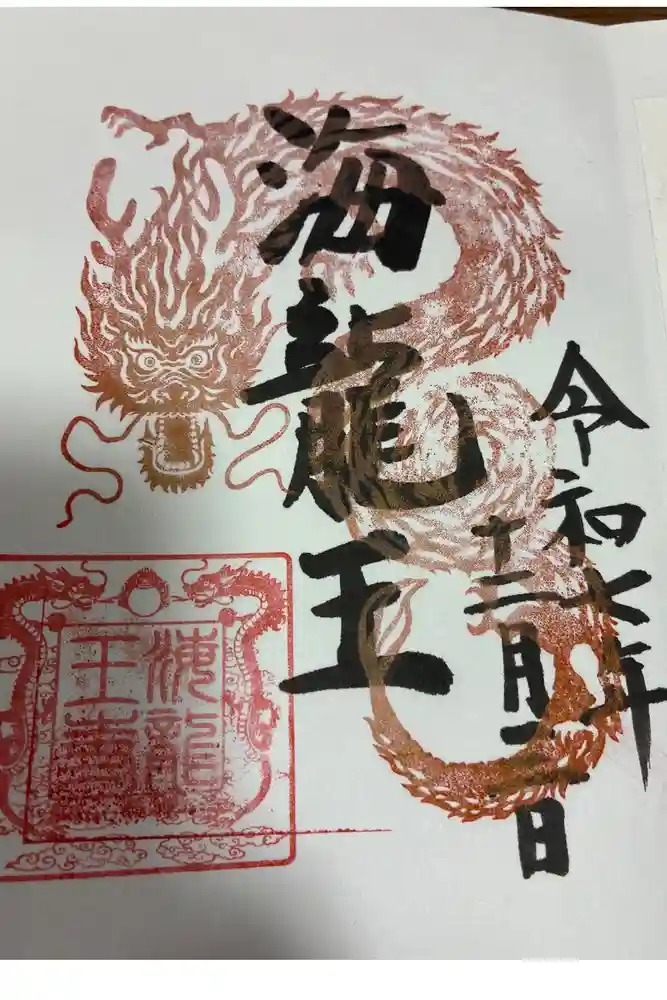 令和七年
十二月二日
海龍王
海龍
王寺